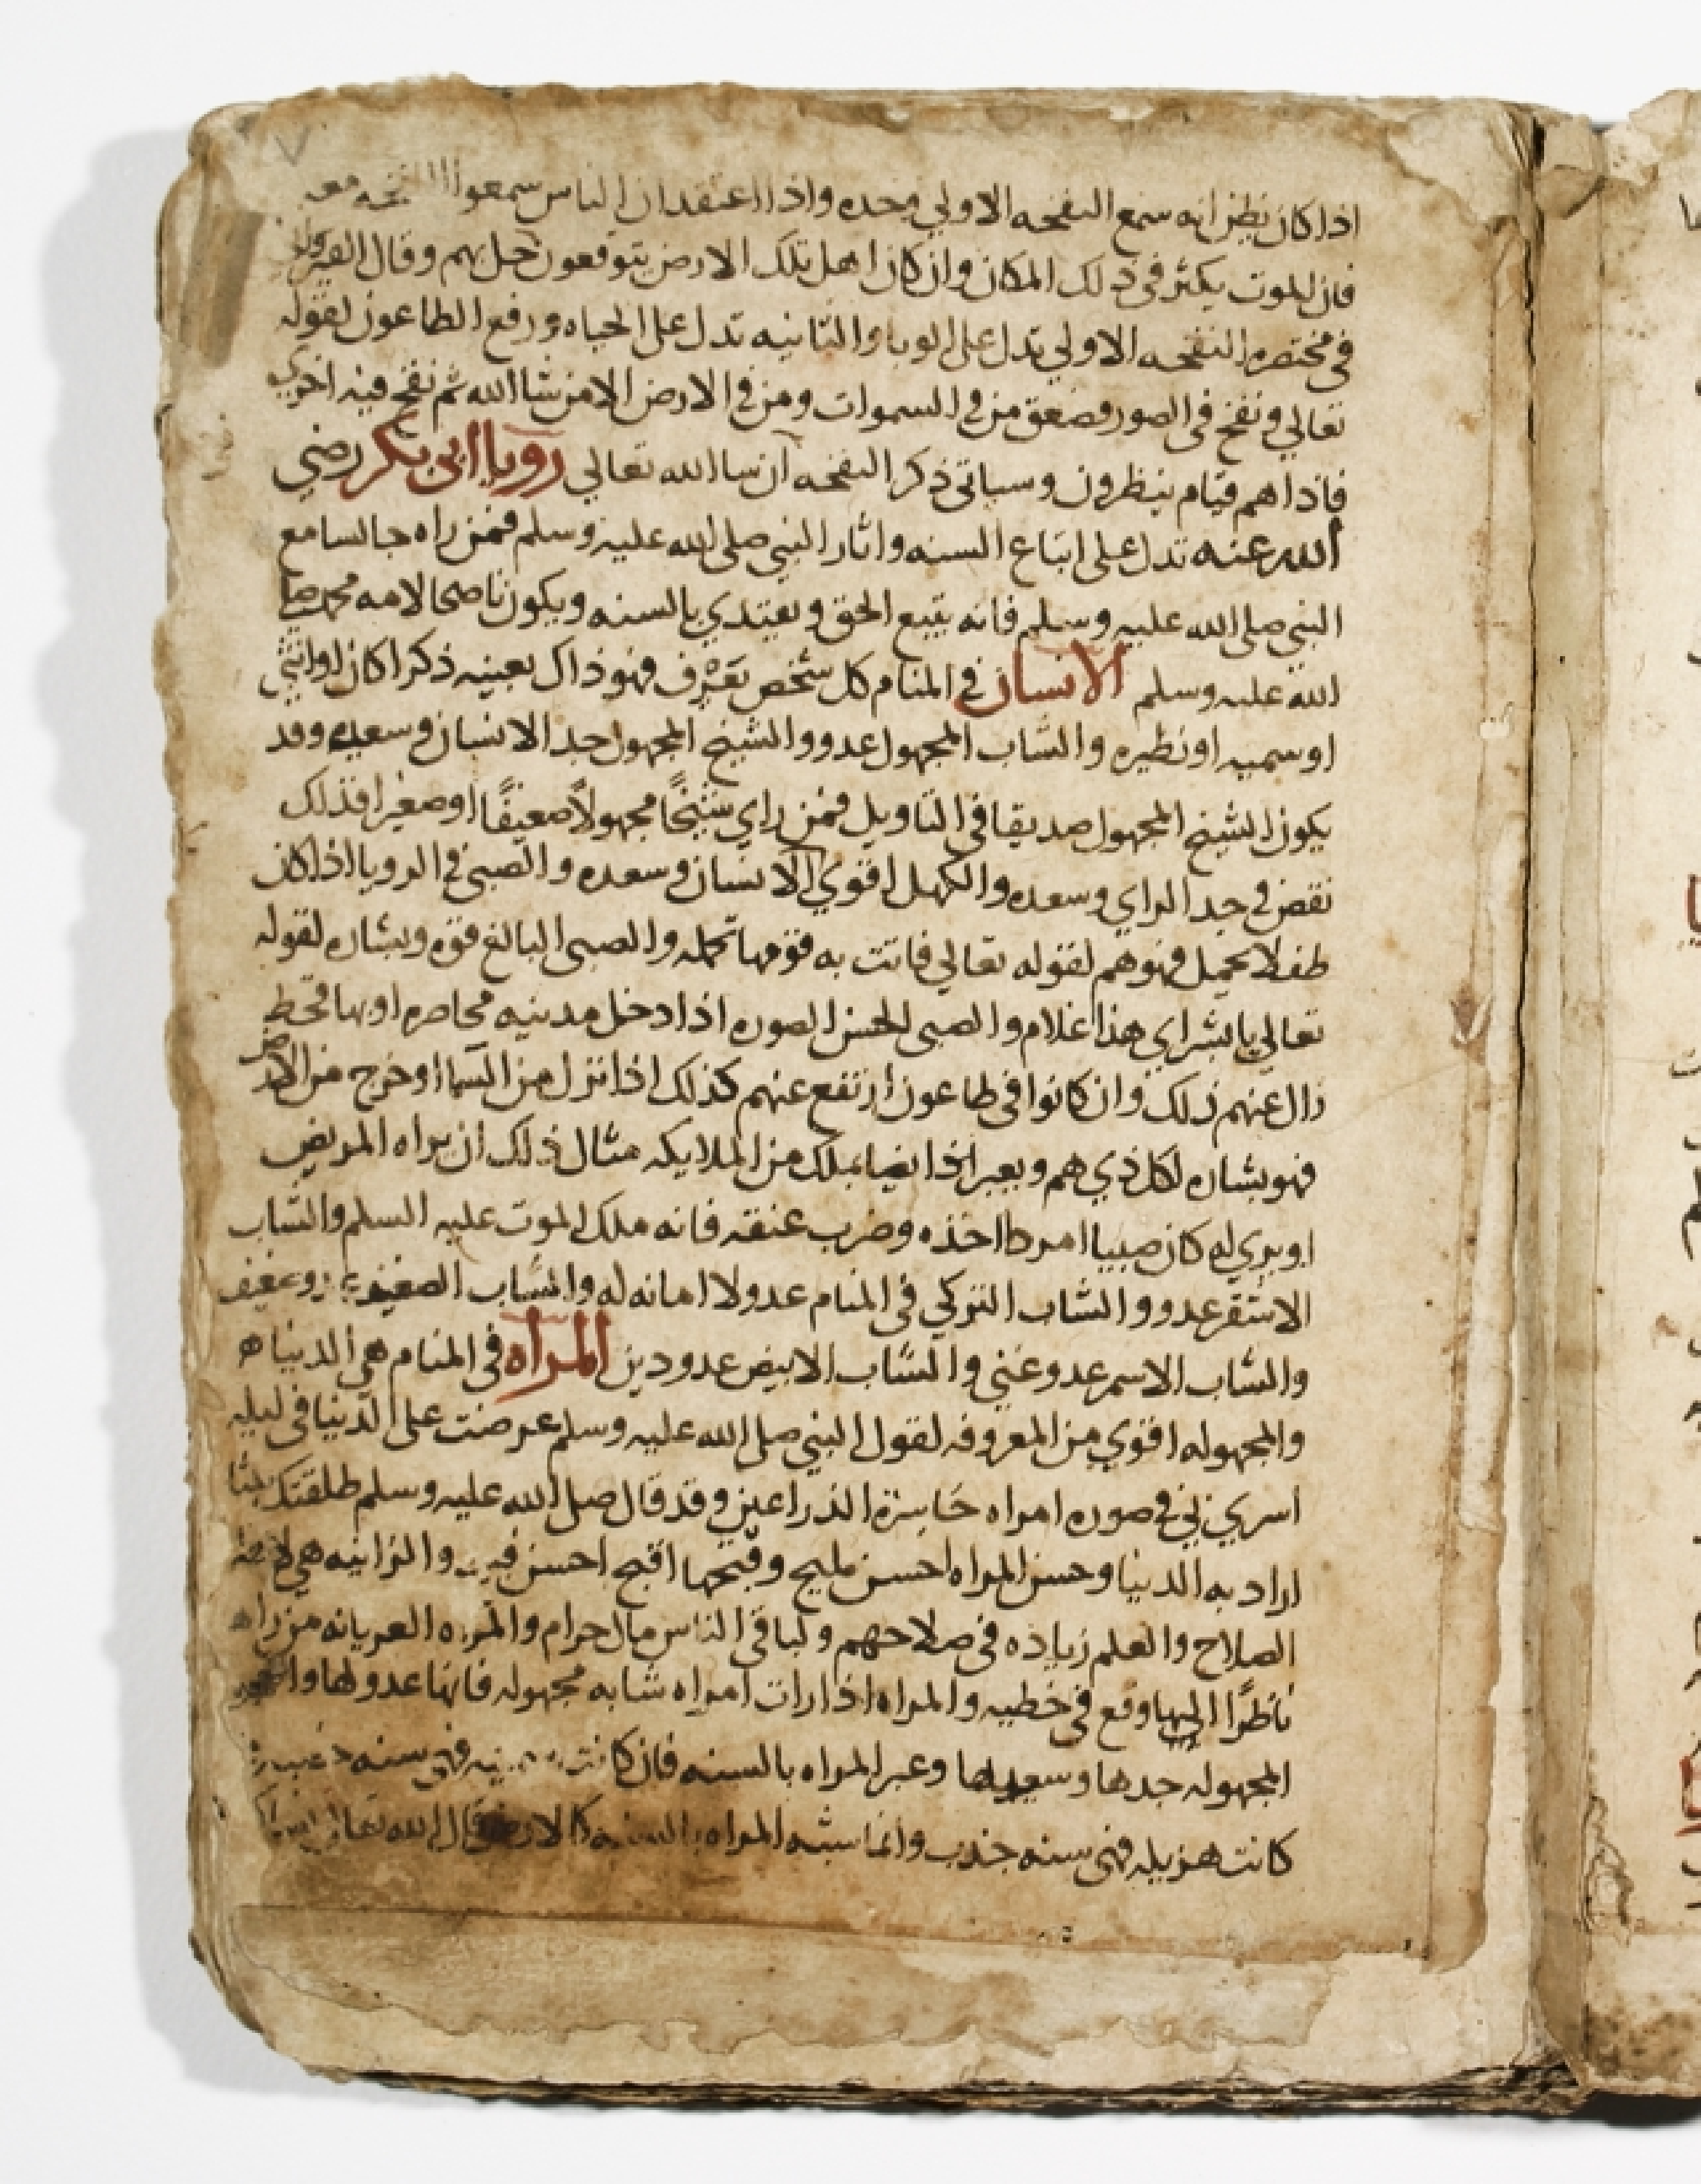 اذا كان يظن انه سمع النفخه الاولي وحده واذا اعتقد ان الناس سمعوا النفخه معه
فان الموت يكثر في ذلك المكان وان كان اهل تلك الارض يتوقعون حل بهم وقال
في مختصره النفخه الاولي تدل علي الوبا والثانيه تدل علي الحياه ورفع الطاعون لقوله
تعالي ونفخ في الصور فصعق من في السموات ومن في الارض الا من شا الله ثم نفخ فيه اخري
فاذا هم قيام ينظرون وسياتي ذكر النفخه ان شا الله تعالي رويا ابي بكر رضي
الله عنه تدل علي اتباع السنه واثار النبي صلي الله عليه وسلم فمن راه جالسا مع
النبي صلي الله عليه وسلم فانه يتبع الحق ويقتدي بالسنه ويكون ناصحا لامه محمد صلي
الله عليه وسلم الانسان في المنام كل شخص يعرف فهو ذاك بعينه ذكرا كان او انثي
او سميه او نظيره والشاب المجهول عدو والشيخ المجهول جد الانسان وسعيه وقد
يكون الشيخ المجهول صديقا في التاويل فمن راي شيخًا مجهولاً ضعيفًا او صغيرا فذلك
نقص في جد الراي وسعده والكهل اقوي الانسان وسعده والصبي في الرويا اذا كان
طفلا يحمل فهو هم لقوله تعالي فاتت به قومها تحمله والصبي البالغ قوه وبشاره لقوله
تعالي يا بشراي هذا غلام والصبي الحسن الصوره اذا دخل مدينه محاصره او بها قحط
زال عنهم ذلك وان كانوا في طاعون ارتفع عنهم كذلك اذا نزل من السما او خرج من الارض
فهو بشاره لكل ذي هم ويعبر اذا ايضا بملك من الملايكه مثال ذلك ان يراه المريض
او يري له كان صبيا امردا اخذه وضرب عنقه فانه ملك الموت عليه السلم والشاب
الاشقر عدو والشاب التركي في المنام عدو لا امانه له والشاب الضعيف
والشاب الاسمر عدو غني والشاب الابيض عدو دين المراه في المنام هي الدنيا
والمجهوله اقوي من المعروفه لقول النبي صلي الله عليه وسلم عرضت علي الدنيا في ليله
اسري بي في صوره امراه حاسرة الذراعين وقد قال صلي الله عليه وسلم طلقتك ثلثا
اراد به الدنيا وحسن المراه احسن مليح وقبحها اقبح احسن قبيح والزانيه هي لاهل
الصلاح والعلم زياده في صلاحهم ولباقي الناس مال حرام والمراه العريانه من راه
ناظرًا اليها وقع في خطيه والمراه اذا رات امراه شابه مجهوله فانها عدو لها والعجوز
المجهوله جدها وسعيها وعبر المراه بالسنه فان كانت سمينه فهي سنه
كانت هزيله فهي سنه جدب وانما شبه المراه بالسنه كالارض قال الله تعالي